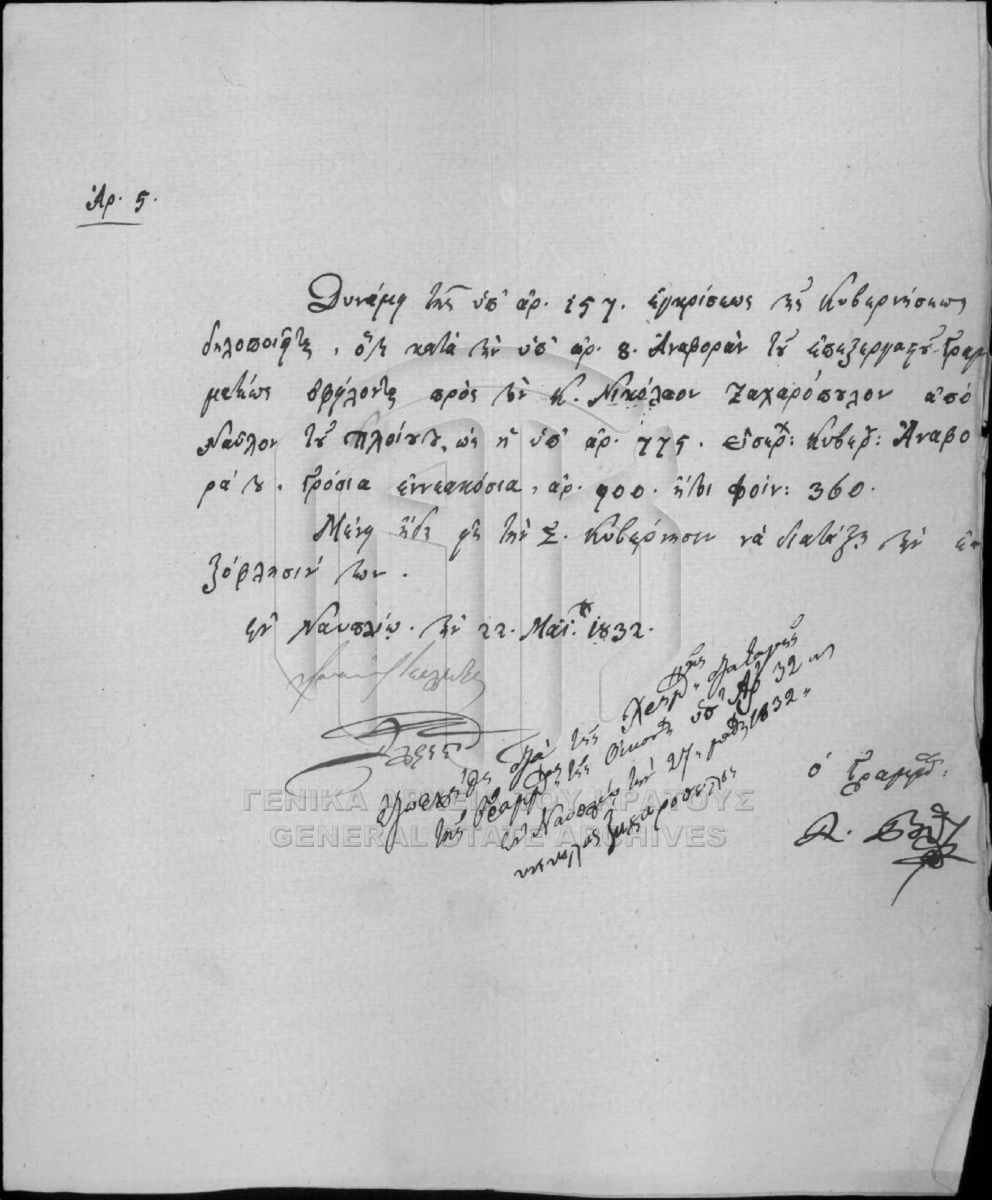 Ἀρ. 5.
Δυνάμει τῆς ὑπ' ἀρ. 157. ἐγκρίσεως τῆς Κυβερνήσεως
δηλοποιεῖται, ὅτι κατὰ τὴν ὑπ' ἀρ. 8. Ἀναφορὰν τοῦ ἐπεξεργασ. Γραμ
ματέως ὀφείλονται πρὸς τὸν Κ. Νικόλαον Ζαχαρόπουλον ἀπὸ
Ναῦλον τοῦ πλοίου του, ὡς ἡ ὑπ' ἀρ. 775. Κυβερ: Ἀναφο
ρά του. Γρόσια ἐννεακόσια, ἀρ. 900. ἤτοι φοίν: 360.
Μένει ἤδη εἰς τὴν Σ. Κυβέρνησιν νὰ διατάξῃ τὴν ἐ
ξόφλησίν των.
Ἐν Ναυπλίῳ. τὴν 22. Μαΐ. 1832.
διὰ τῆς Χρημ διαταγῆς
τῆς Γραμμ τῆς Οἰκον ὑπ' Ἀρ 32
ἐν Ναυπλίῳ τὴν 27 1832
νικόλαος ζαχαρόπουλος
ὁ Γραμμ:
ΓΕΝΙΚΑ ΑΡΧΕΙΑ ΤΟΥ ΚΡΑΤΟΥΣ
GENERAL STATE ARCHIVES